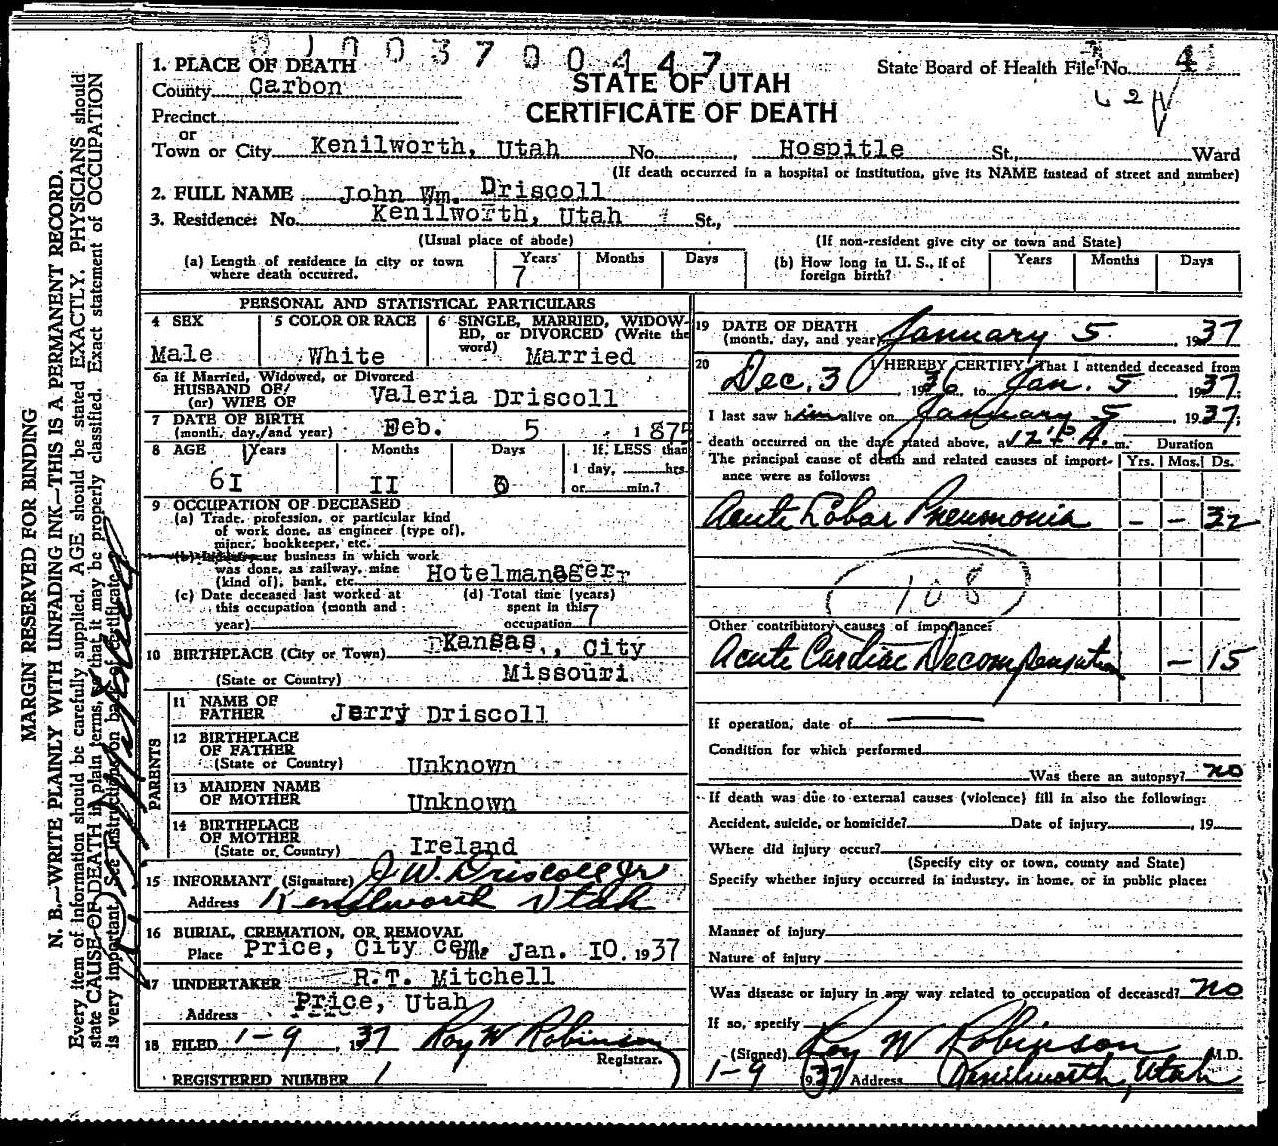 01003700447
1. PLACE OF DEATH
STATE OF UTAH
CERTIFICATE OF DEATH
State Board of Health File No. 4
County Carbon
Precinct
or
Town or City Kenilworth, Utah No. , Hospitle St., Ward
(If death occurred in a hospital or institution, give its NAME instead of street and number)
2. FULL NAME John Wm. Driscoll
3. Residence: No. Kenilworth, Utah St.,
(Usual place of abode) (If non-resident give city or town and State)
(a) Length of residence in city or town where death occurred. Years 7 Months Days
(b) How long in U. S., if of foreign birth? Years Months Days
PERSONAL AND STATISTICAL PARTICULARS
4 SEX Male
5 COLOR OR RACE White
6 SINGLE, MARRIED, WIDOWED, OR DIVORCED (Write the word) Married
6a If Married, Widowed, or Divorced
HUSBAND OF/
(or) WIFE OF Valeria Driscoll
7 DATE OF BIRTH
(month, day, and year) Feb. 5 1875
8 AGE Years 61 Months II Days 0
If LESS than
1 day, hrs.
or min.?
9 OCCUPATION OF DECEASED
(a) Trade, profession, or particular kind
of work done, as engineer (type of),
miner, bookkeeper, etc.
(b) business in which work
was done, as railway, mine
(kind of), bank, etc. Hotelmanager
(c) Date deceased last worked at
this occupation (month and
year)
(d) Total time (years)
spent in this
occupation 7
10 BIRTHPLACE (City or Town) Kansas, City
(State or Country) Missouri
PARENTS
11 NAME OF
FATHER Jerry Driscoll
12 BIRTHPLACE
OF FATHER
(State or Country) Unknown
13 MAIDEN NAME
OF MOTHER Unknown
14 BIRTHPLACE
OF MOTHER
(State or Country) Ireland
15 INFORMANT (Signature) J. W. Driscoll Jr
Address Kenilworth Utah
16 BURIAL, CREMATION, OR REMOVAL
Place Price, City cem. Date Jan. 10. 1937
17 UNDERTAKER R.T. Mitchell
Address Price, Utah
18 FILED 1-9, 1937 Roy W Robinson
Registrar.
REGISTERED NUMBER 1
19 DATE OF DEATH
(month, day, and year) January 5. , 1937
20 I HEREBY CERTIFY, That I attended deceased from
Dec. 30, 1936 to Jan. 5, 1937;
I last saw him alive on January 5, 1937;
death occurred on the date stated above, at m. Duration
The principal cause of death and related causes of importance were as follows: Yrs. Mos. Ds.
Acute Lobar Pneumonia - -
108
Other contributory causes of importance:
Acute Cardiac Decompensation - 15
If operation, date of
Condition for which performed
Was there an autopsy? no
If death was due to external causes (violence) fill in also the following:
Accident, suicide, or homicide? Date of injury , 19
Where did injury occur?
(Specify city or town, county and State)
Specify whether injury occurred in industry, in home, or in public place:
Manner of injury
Nature of injury
Was disease or injury in any way related to occupation of deceased? no
If so, specify
(Signed) Roy W Robinson M.D.
1-9 1937 Address Kenilworth, Utah
MARGIN RESERVED FOR BINDING
N. B.—WRITE PLAINLY WITH UNFADING INK—THIS IS A PERMANENT RECORD.
Every item of information should be carefully supplied. AGE should be stated EXACTLY. PHYSICIANS should
state CAUSE OF DEATH in plain terms, so that it may be properly classified. Exact statement of OCCUPATION
is very important. See instructions on back of certificate.